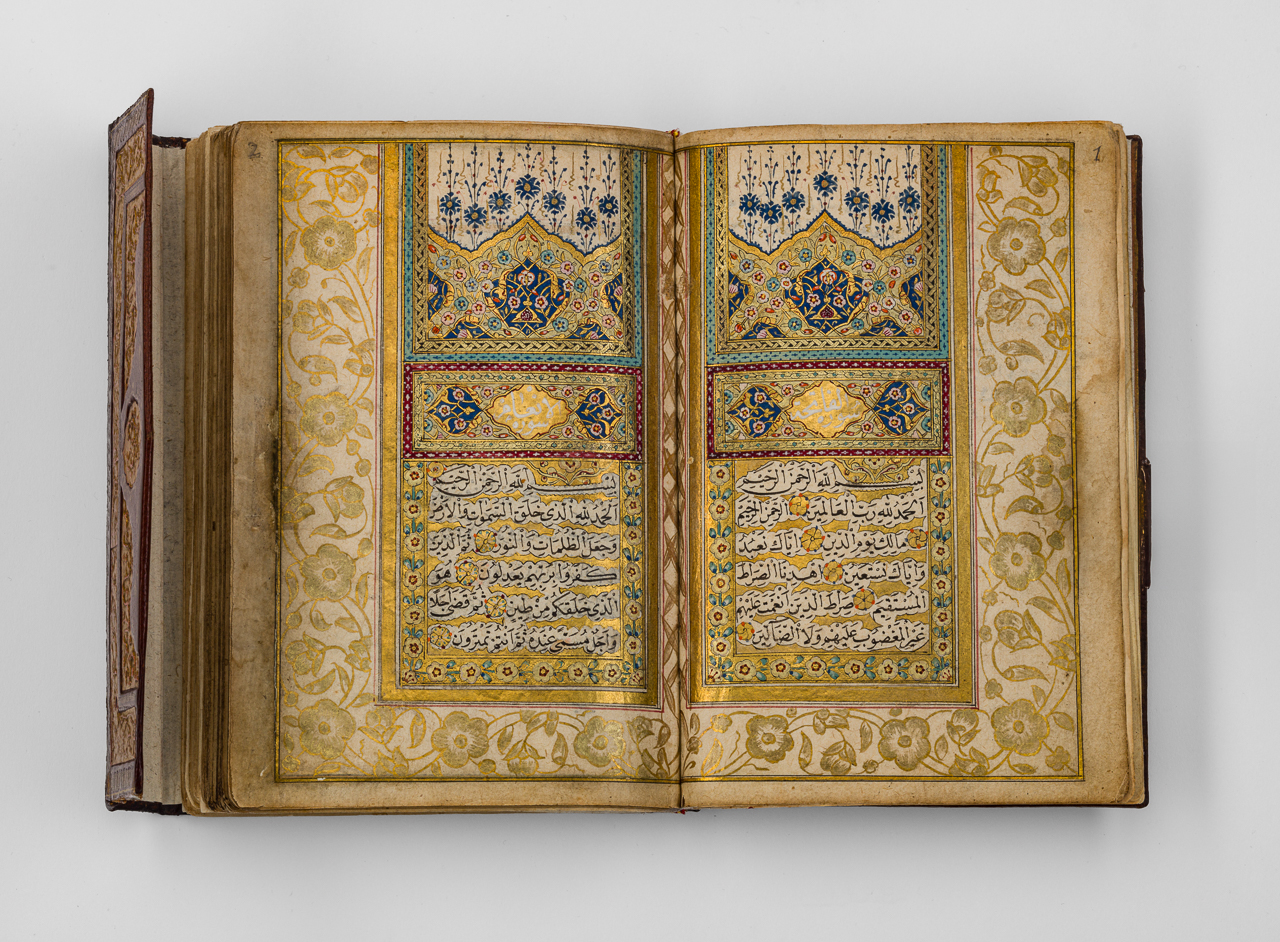 1
بسم الله الرحمن الرحيم
الحمد لله رب العالمين الرحمن الرحيم
مالك يوم الدين اياك نعبد
واياك نستعين اهدنا الصراط
المستقيم صراط الذين انعمت عليهم
غير المغضوب عليهم ولا الضالين
2
بسم الله الرحمن الرحيم
الحمد لله الذي خلق السموات والارض
وجعل الظلمات والنور ثم الذين
كفروا بربهم يعدلون هو
الذي خلقكم من طين ثم قضى اجلا
واجل مسمى عنده ثم انتم تمترون